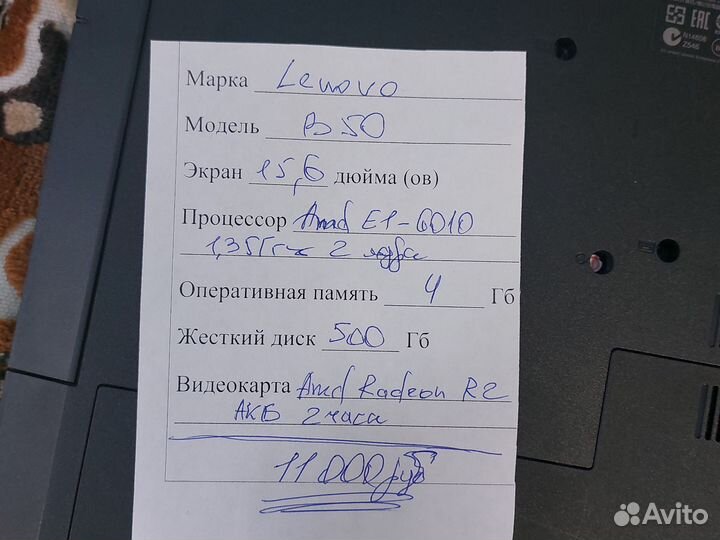 EAC
N14606
Z546
Марка Lenovo
Модель B50
Экран 15,6 дюйма (ов)
Процессор Amd E1-6010
1,35Ггц 2 ядра
Оперативная память 4 Гб
Жесткий диск 500 Гб
Видеокарта Amd Radeon R2
АКБ 2 часа
11 000 руб
Avito